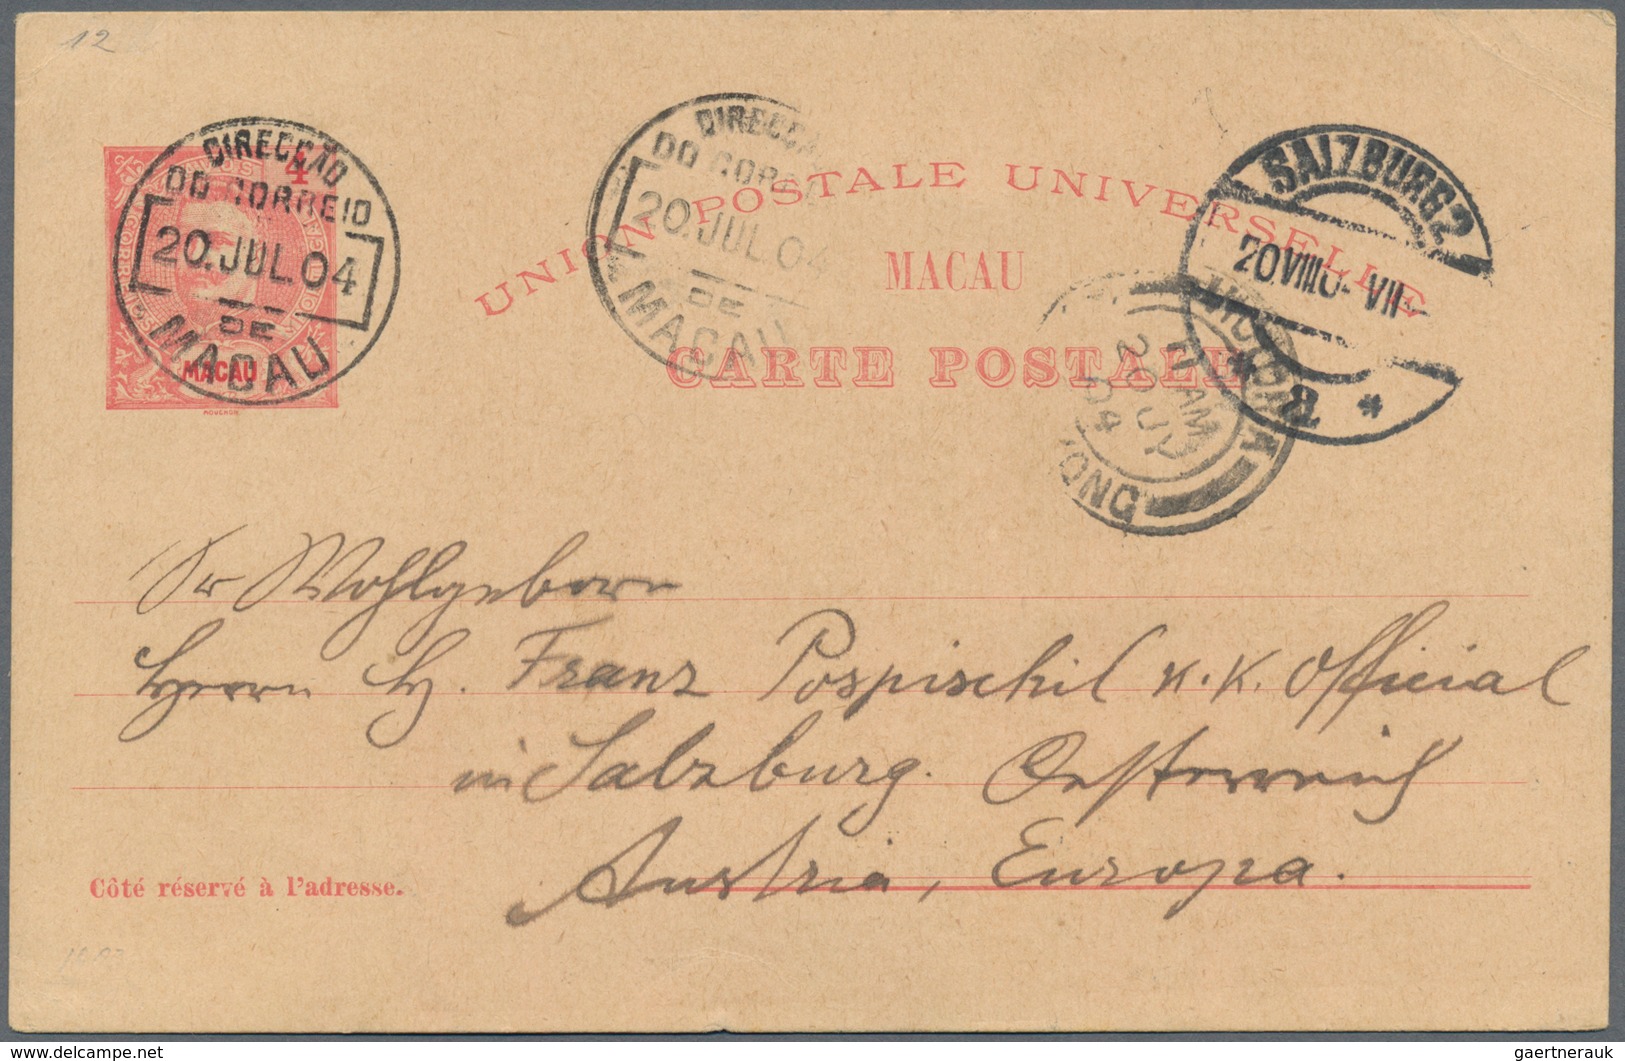 12
4
MACAU
MOUCHON
DIRECÇÃO
DO CORREIO
20.JUL.04
DE
MACAU
DIRECÇÃ
DO CORRE
20.JUL.04
DE
MACAU
UNION POSTALE UNIVERSELLE
MACAU
CARTE POSTALE
SALZBURG 2
20 VIII 0- VII-
* 2 *
11 AM
20 JY
04
Sr Wohlgeborn
Herrn H. Franz Pospischil K. K. Official
in Salzburg. Oesterreich
Austria, Europa.
Côté réservé à l'adresse.
gaertnerauk